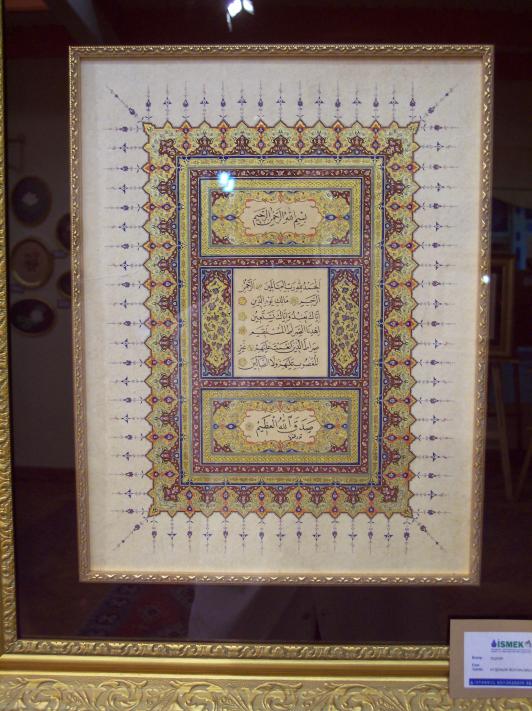 بسم الله الرحمن الرحيم
الحمد لله رب العالمين الرحمن
الرحيم مالك يوم الدين
إياك نعبد وإياك نستعين
اهدنا الصراط المستقيم
صراط الذين أنعمت عليهم غير
المغضوب عليهم ولا الضالين
صدق الله العظيم
İSMEK
İSTANBUL BÜYÜKŞEHİR